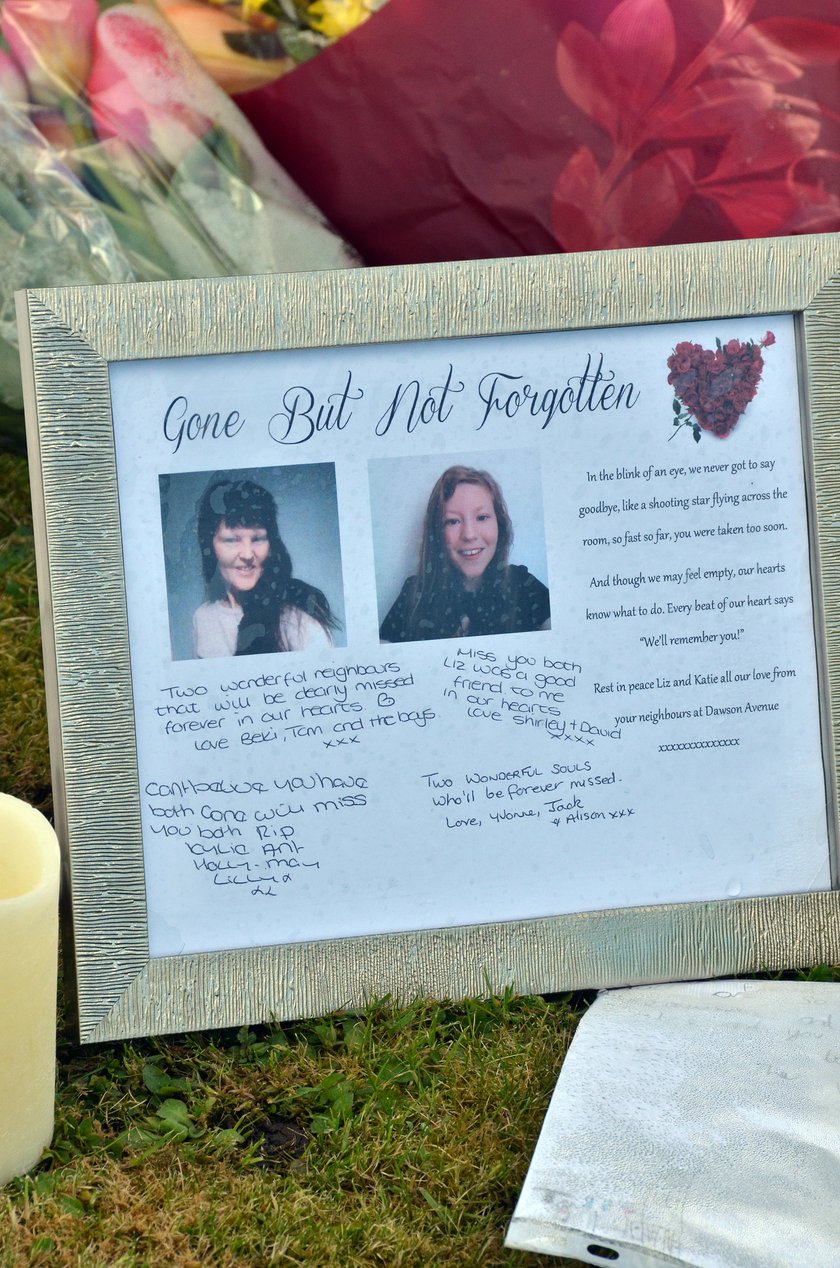 Gone But Not Forgotten
In the blink of an eye, we never got to say
goodbye, like a shooting star flying across the
room, so fast so far, you were taken too soon.
And though we may feel empty, our hearts
know what to do. Every beat of our heart says
“We'll remember you!”
Rest in peace Liz and Katie all our love from
your neighbours at Dawson Avenue
xxxxxxxxxxxxxx
Two wonderful neighbours
that will be dearly missed
forever in our hearts
love Beki, Tom and the boys.
xxx
Miss you both
Liz was a good
friend to me
in our hearts
love Shirley + David
xxxx
Cant believe you have
both Gone will miss
you both RIP
Kylie Ant
Holly-may
Lilly x
xx
Two wonderful souls
who'll be forever missed.
Love, Yvonne, Jack
& Alison xxx